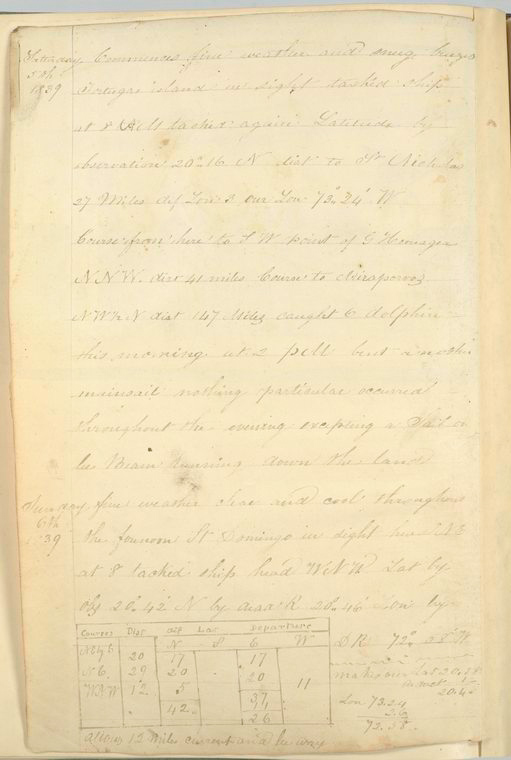 Saturday Commences fine weather and energ breezes
5th
1839
Tortugas island in sight tacked ship
at 8 tacked again Latitude by
observation 20° 16 N dist to St Nicholas
27 Miles dif Lon 3 our Lon 73° 24' W
Course from here to S W point of G Heneaga
N N W dist 41 miles Course to
N W b N dist 147 Miles caught 6 dolphin
this morning at 2 P M bent a
mainsail nothing particular occurred
throughout the evening excepting a Sail on
lee Beam running down the land
fine weather clear and cool throughout
6th
39
the forenoon St Domingo in sight head N E
at 8 tacked ship head W N W Lat by
obs 20° 42' N by dead R 20° 46' Lon by
D R 72°
Courses Dist Dif Lat Departure
N S E W
20 17 17
N E 29 20 20
W N W 12 5 11
42 37
26
makes our Lat 20.58
20.4
Lon 73.24
72.58
allow 12 miles current and lee way